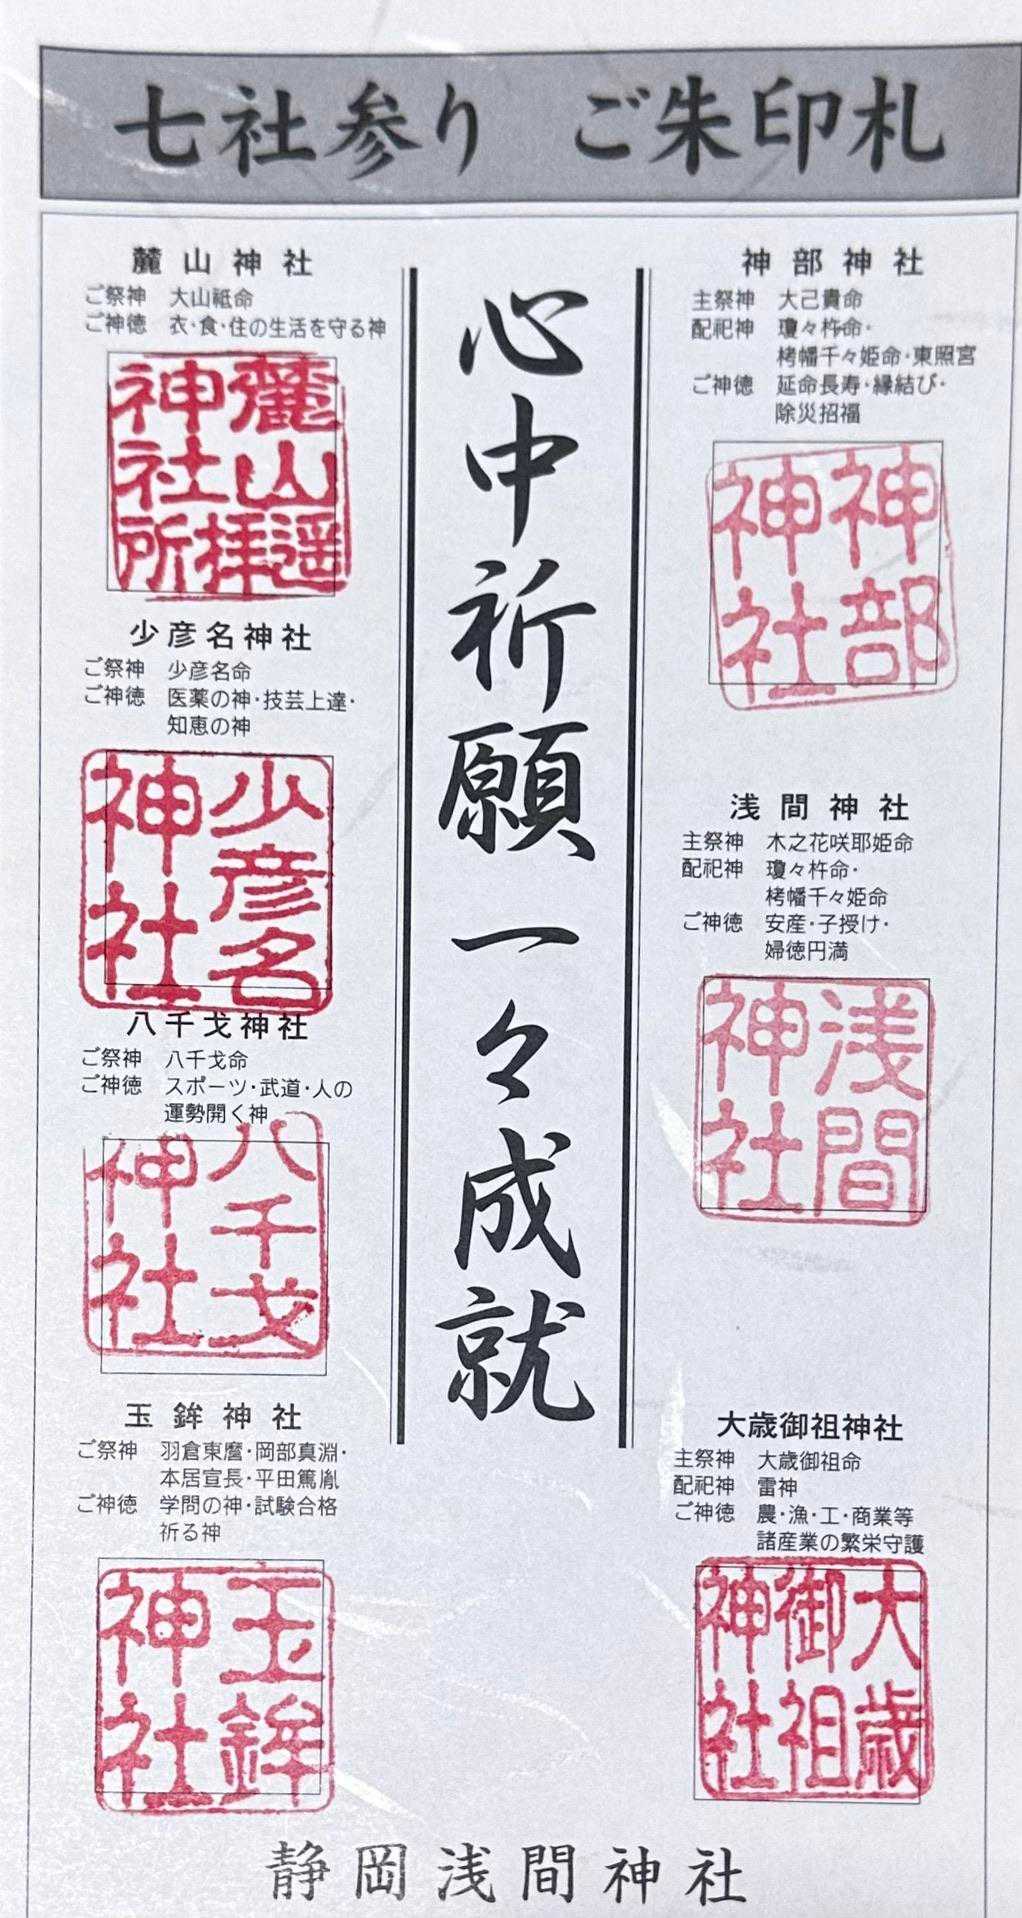 七社参り ご朱印札
神部神社
主祭神 大己貴命
配祀神 瓊々杵命・
栲幡千々姫命・東照宮
ご神徳 延命長寿・縁結び・
除災招福
神部
神社
浅間神社
主祭神 木之花咲耶姫命
配祀神 瓊々杵命・
栲幡千々姫命
ご神徳 安産・子授け・
婦徳円満
浅間
神社
大歳御祖神社
主祭神 大歳御祖命
配祀神 雷神
ご神徳 農・漁・工・商業等
諸産業の繁栄守護
大歳
御祖
神社
心中祈願一々成就
麓山神社
ご祭神 大山祗命
ご神徳 衣・食・住の生活を守る神
麓山遥
拝
神社所
少彦名神社
ご祭神 少彦名命
ご神徳 医薬の神・技芸上達・
知恵の神
少彦名
神社
八千戈神社
ご祭神 八千戈命
ご神徳 スポーツ・武道・人の
運勢開く神
八千戈
神社
玉鉾神社
ご祭神 羽倉東麿・岡部真淵・
本居宣長・平田篤胤
ご神徳 学問の神・試験合格
祈る神
玉鉾
神社
静岡浅間神社